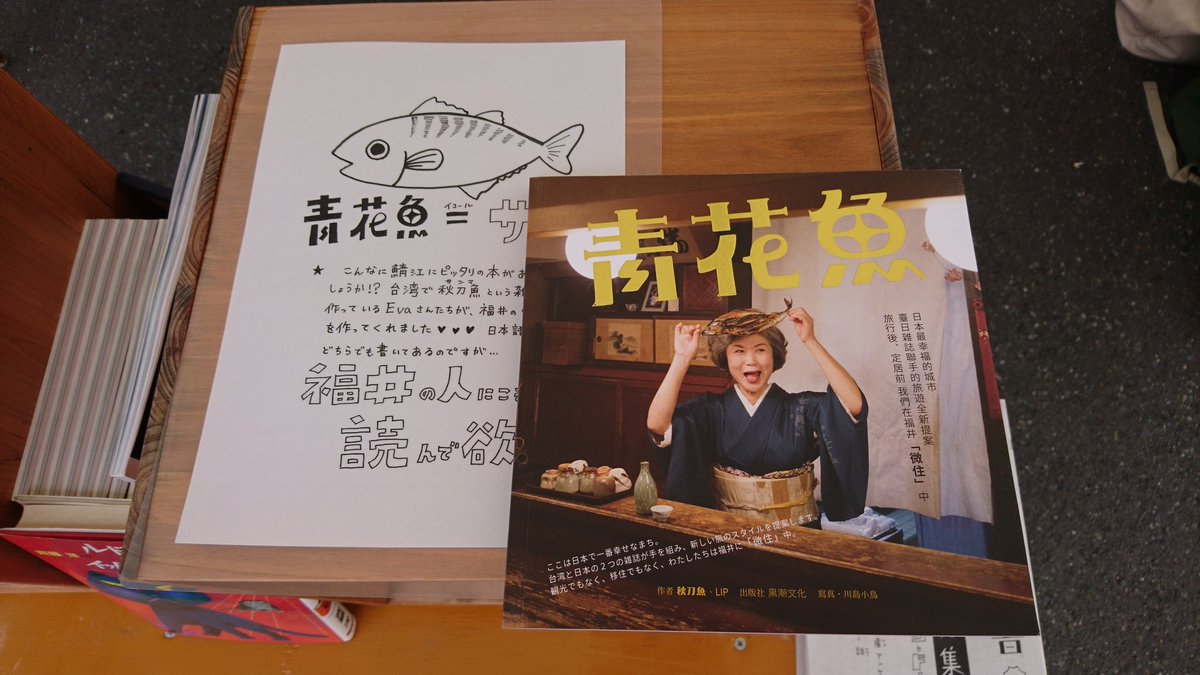 青花魚
イコール
=
サ
★ こんなに鯖江にピッタリの本があ
しょうか!? 台湾で秋刀魚という雑
サンマ
作っているEvaさんたちが、福井の
を作ってくれました♥♥♥ 日本語
どちらでも書いてあるのですが…
福井の人にこ
読んで欲
青花魚
日本最幸福的城市
臺日雜誌聯手的旅遊全新提案
旅行後、定居前 我們在福井「微住」中
ここは日本で一番幸せなまち。
台湾と日本の2つの雑誌が手を組み、新しい旅のスタイルを提案します。
観光でもなく、移住でもなく、わたしたちは福井に「微住」中。
作者 秋刀魚・LIP 出版社 黑潮文化 寫真・川島小鳥
集